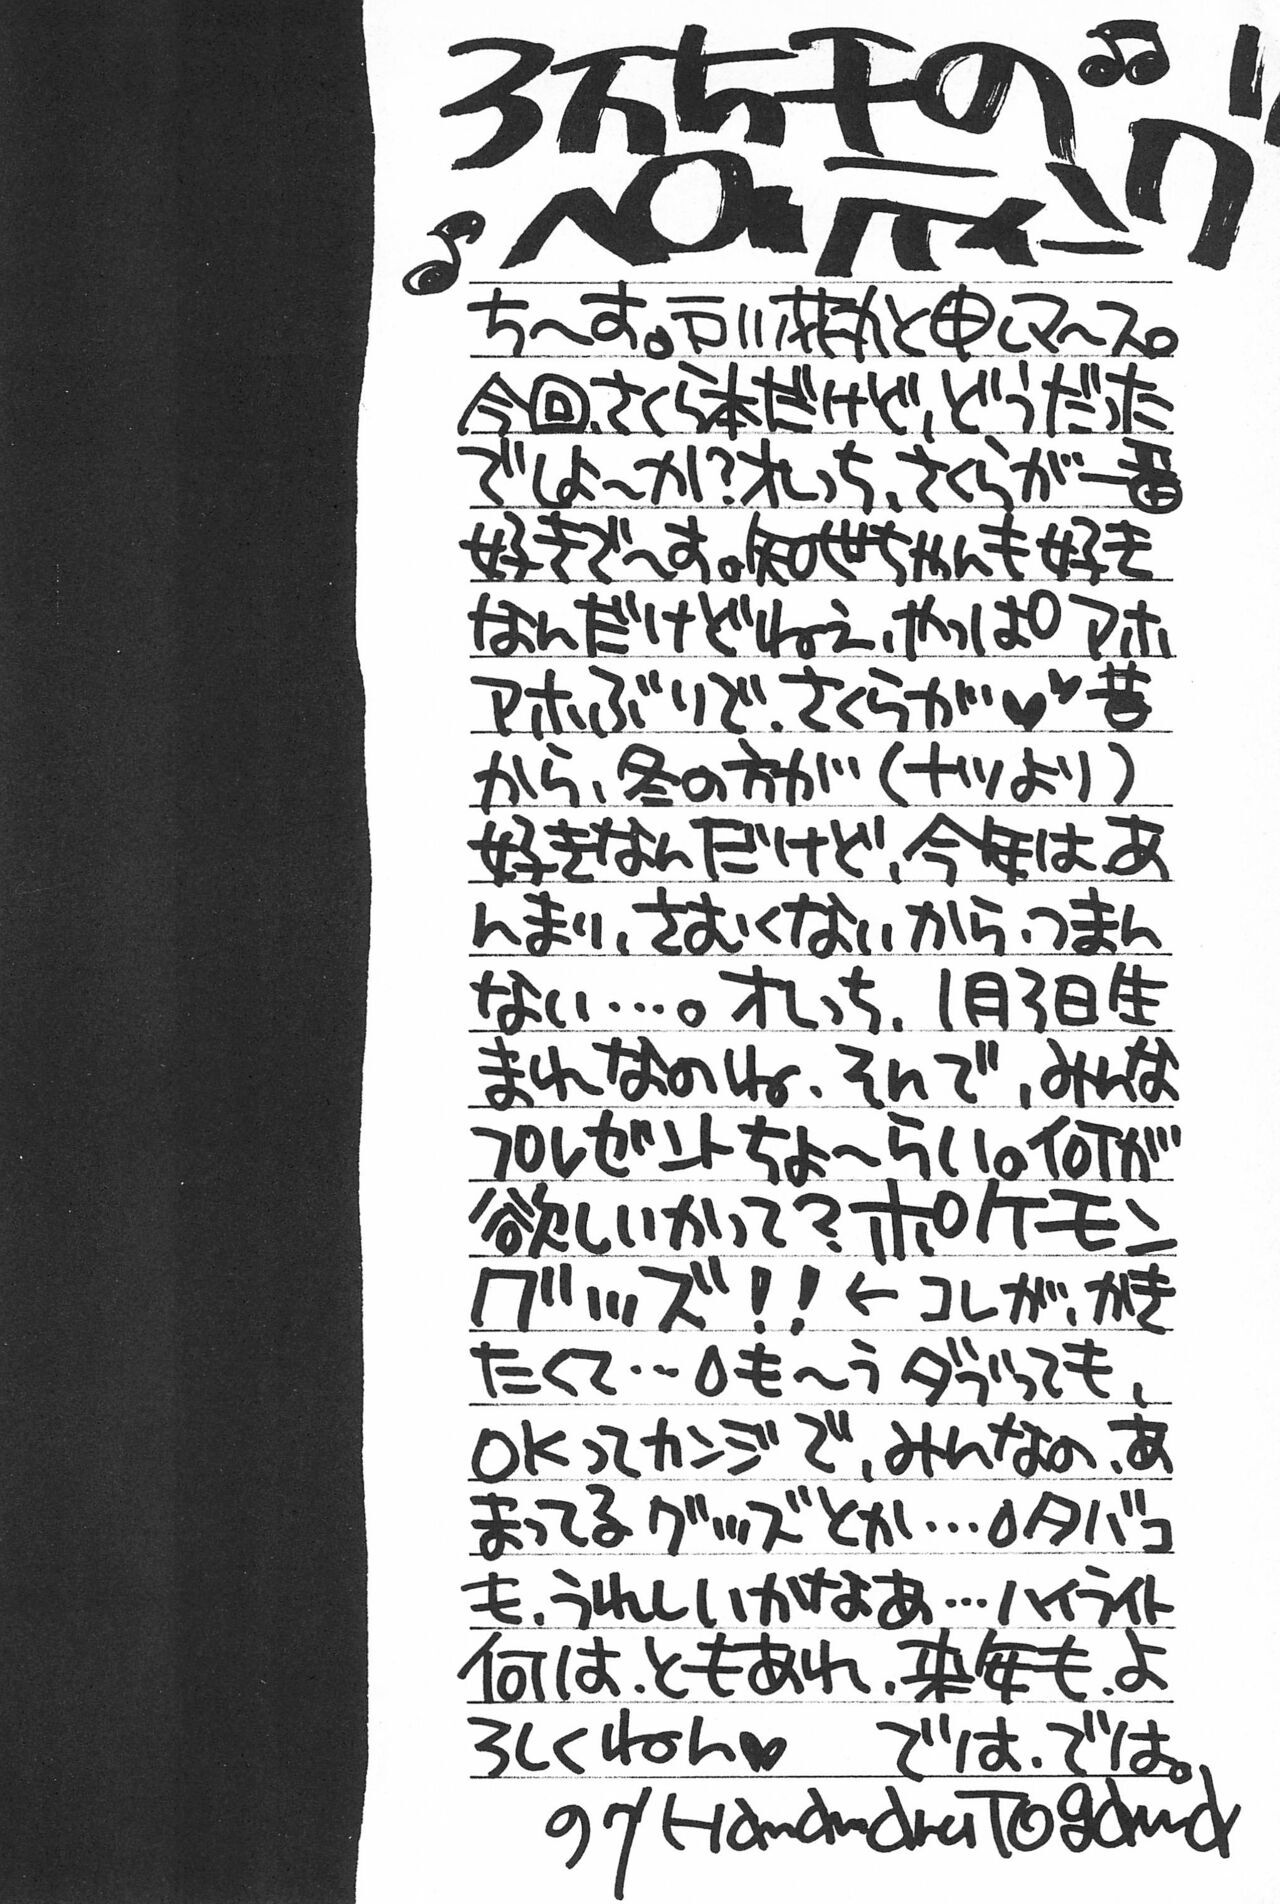 ち〜す。戸川花丸と申しマ〜ス。
今回、さくら本だけど、どうだった
でしよ〜か?オレっち、さくらが一番
好きで〜す。知世ちゃんも好き
なんだけどねえ、やっぱ アホ
アホぶりで、さくらが♥♥昔
から、冬の方が(ナツより)
好きなんだけど、今年は、あ
んまり、さむくないから、つまん
ない…。オレっち、1月3日生
まれなのね、そんで、みんな
プレゼントちょ〜らい。何が
欲しいかって?ポケモン
グッズ!!←コレが、かき
たくて…。も〜うダブっても、
OKってカンジで、みんなの、あ
まってるグッズとか…。タバコ
も、うれしいかなあ…ハイライト
何は、ともあれ、来年も、よ
ろしくねん♥ では、では。
97